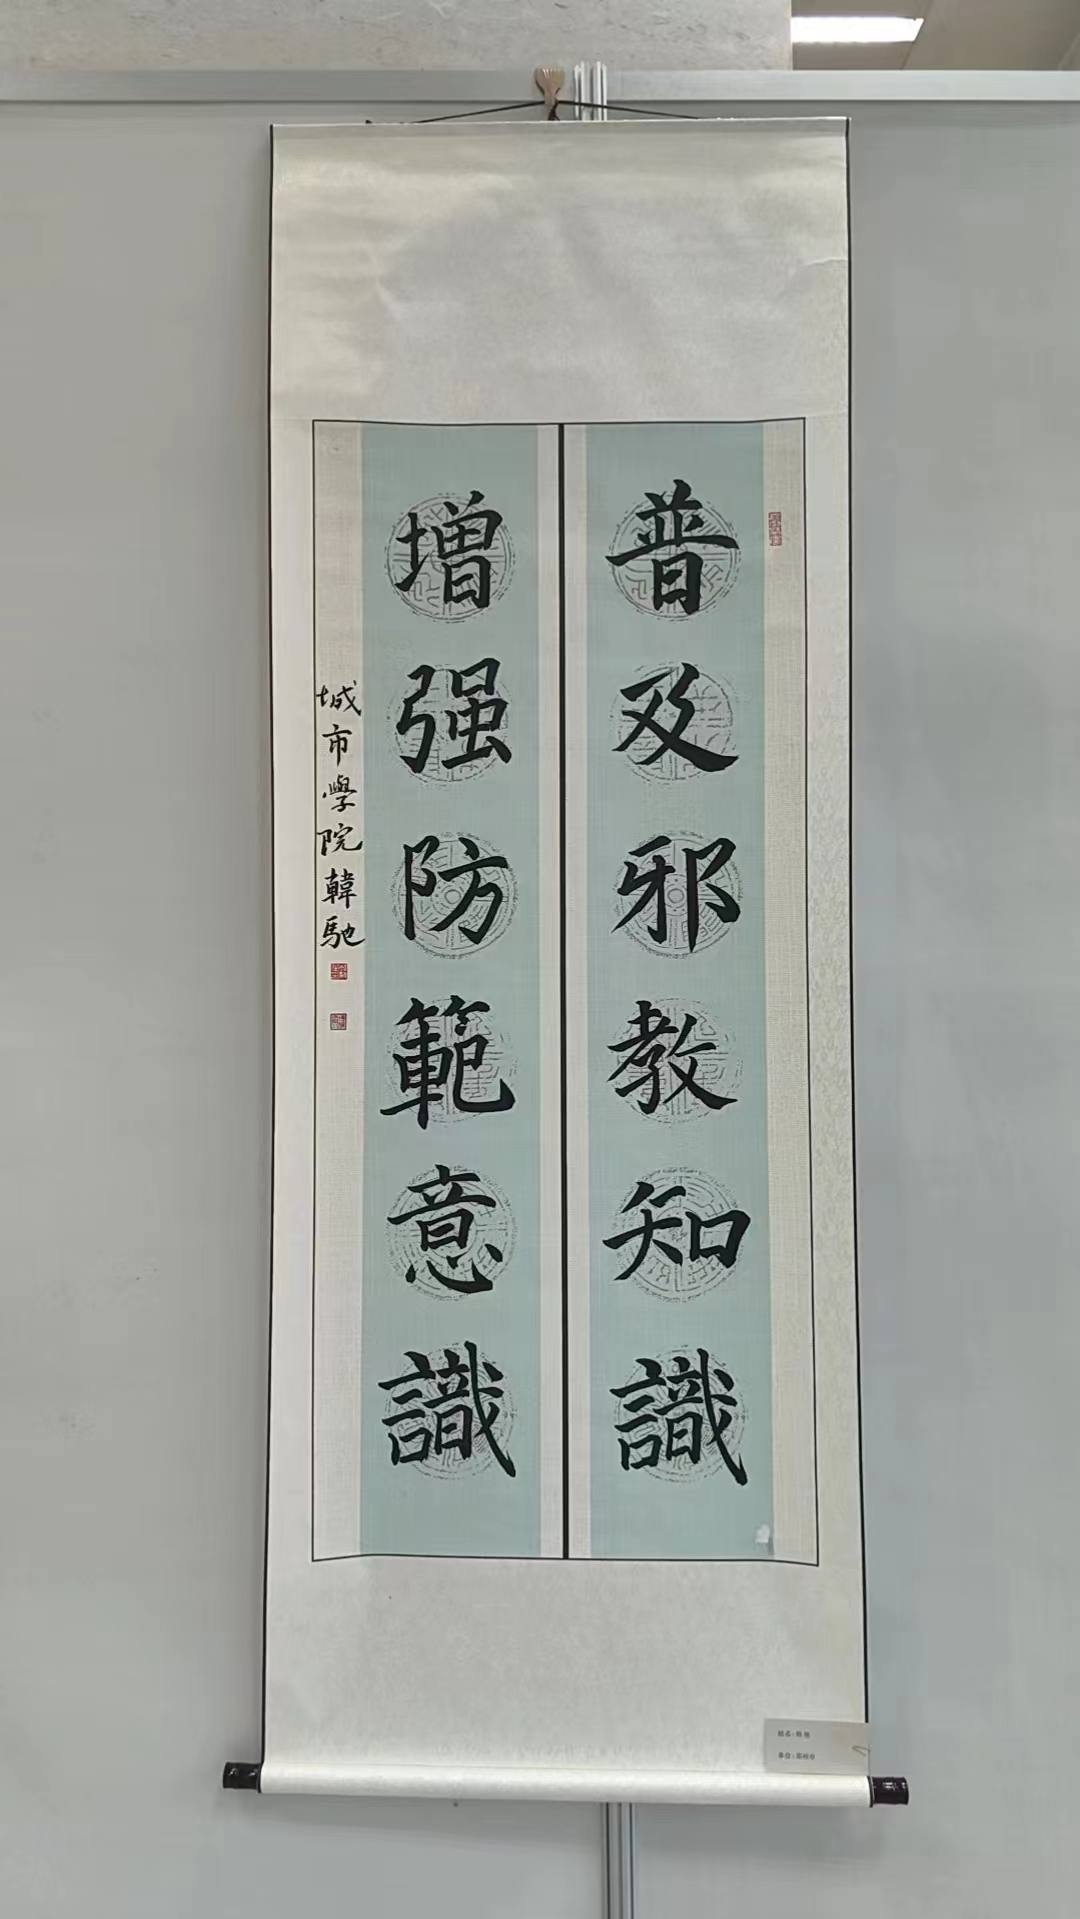 普及邪教知識
增强防範意識
城市學院韓馳
姓名：韩驰
单位：郑州市